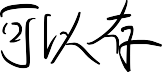 可以存